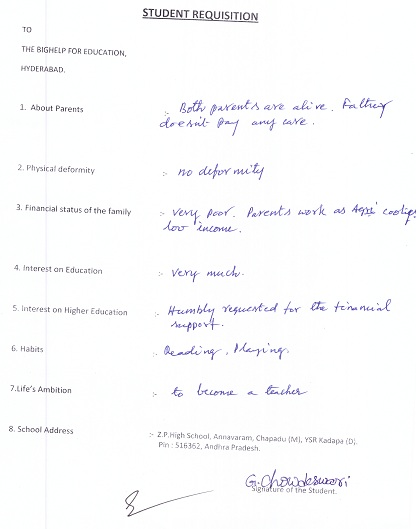 STUDENT REQUISITION
TO
THE BIGHELP FOR EDUCATION,
HYDERABAD.
1. About Parents :- Both parents are alive. Father
doesn't pay any care.
2. Physical deformity :- no deformity
3. Financial status of the family :- very poor. Parents work as Agri coolies
low income.
4. Interest on Education :- very much.
5. Interest on Higher Education :- Humbly requested for the financial
support.
6. Habits :- Reading, Playing.
7.Life's Ambition :- to become a teacher
8. School Address :- Z.P.High School, Annavaram, Chapadu (M), YSR Kadapa (D).
Pin : 516362, Andhra Pradesh.
G. Chowdeswari
Signature of the Student.